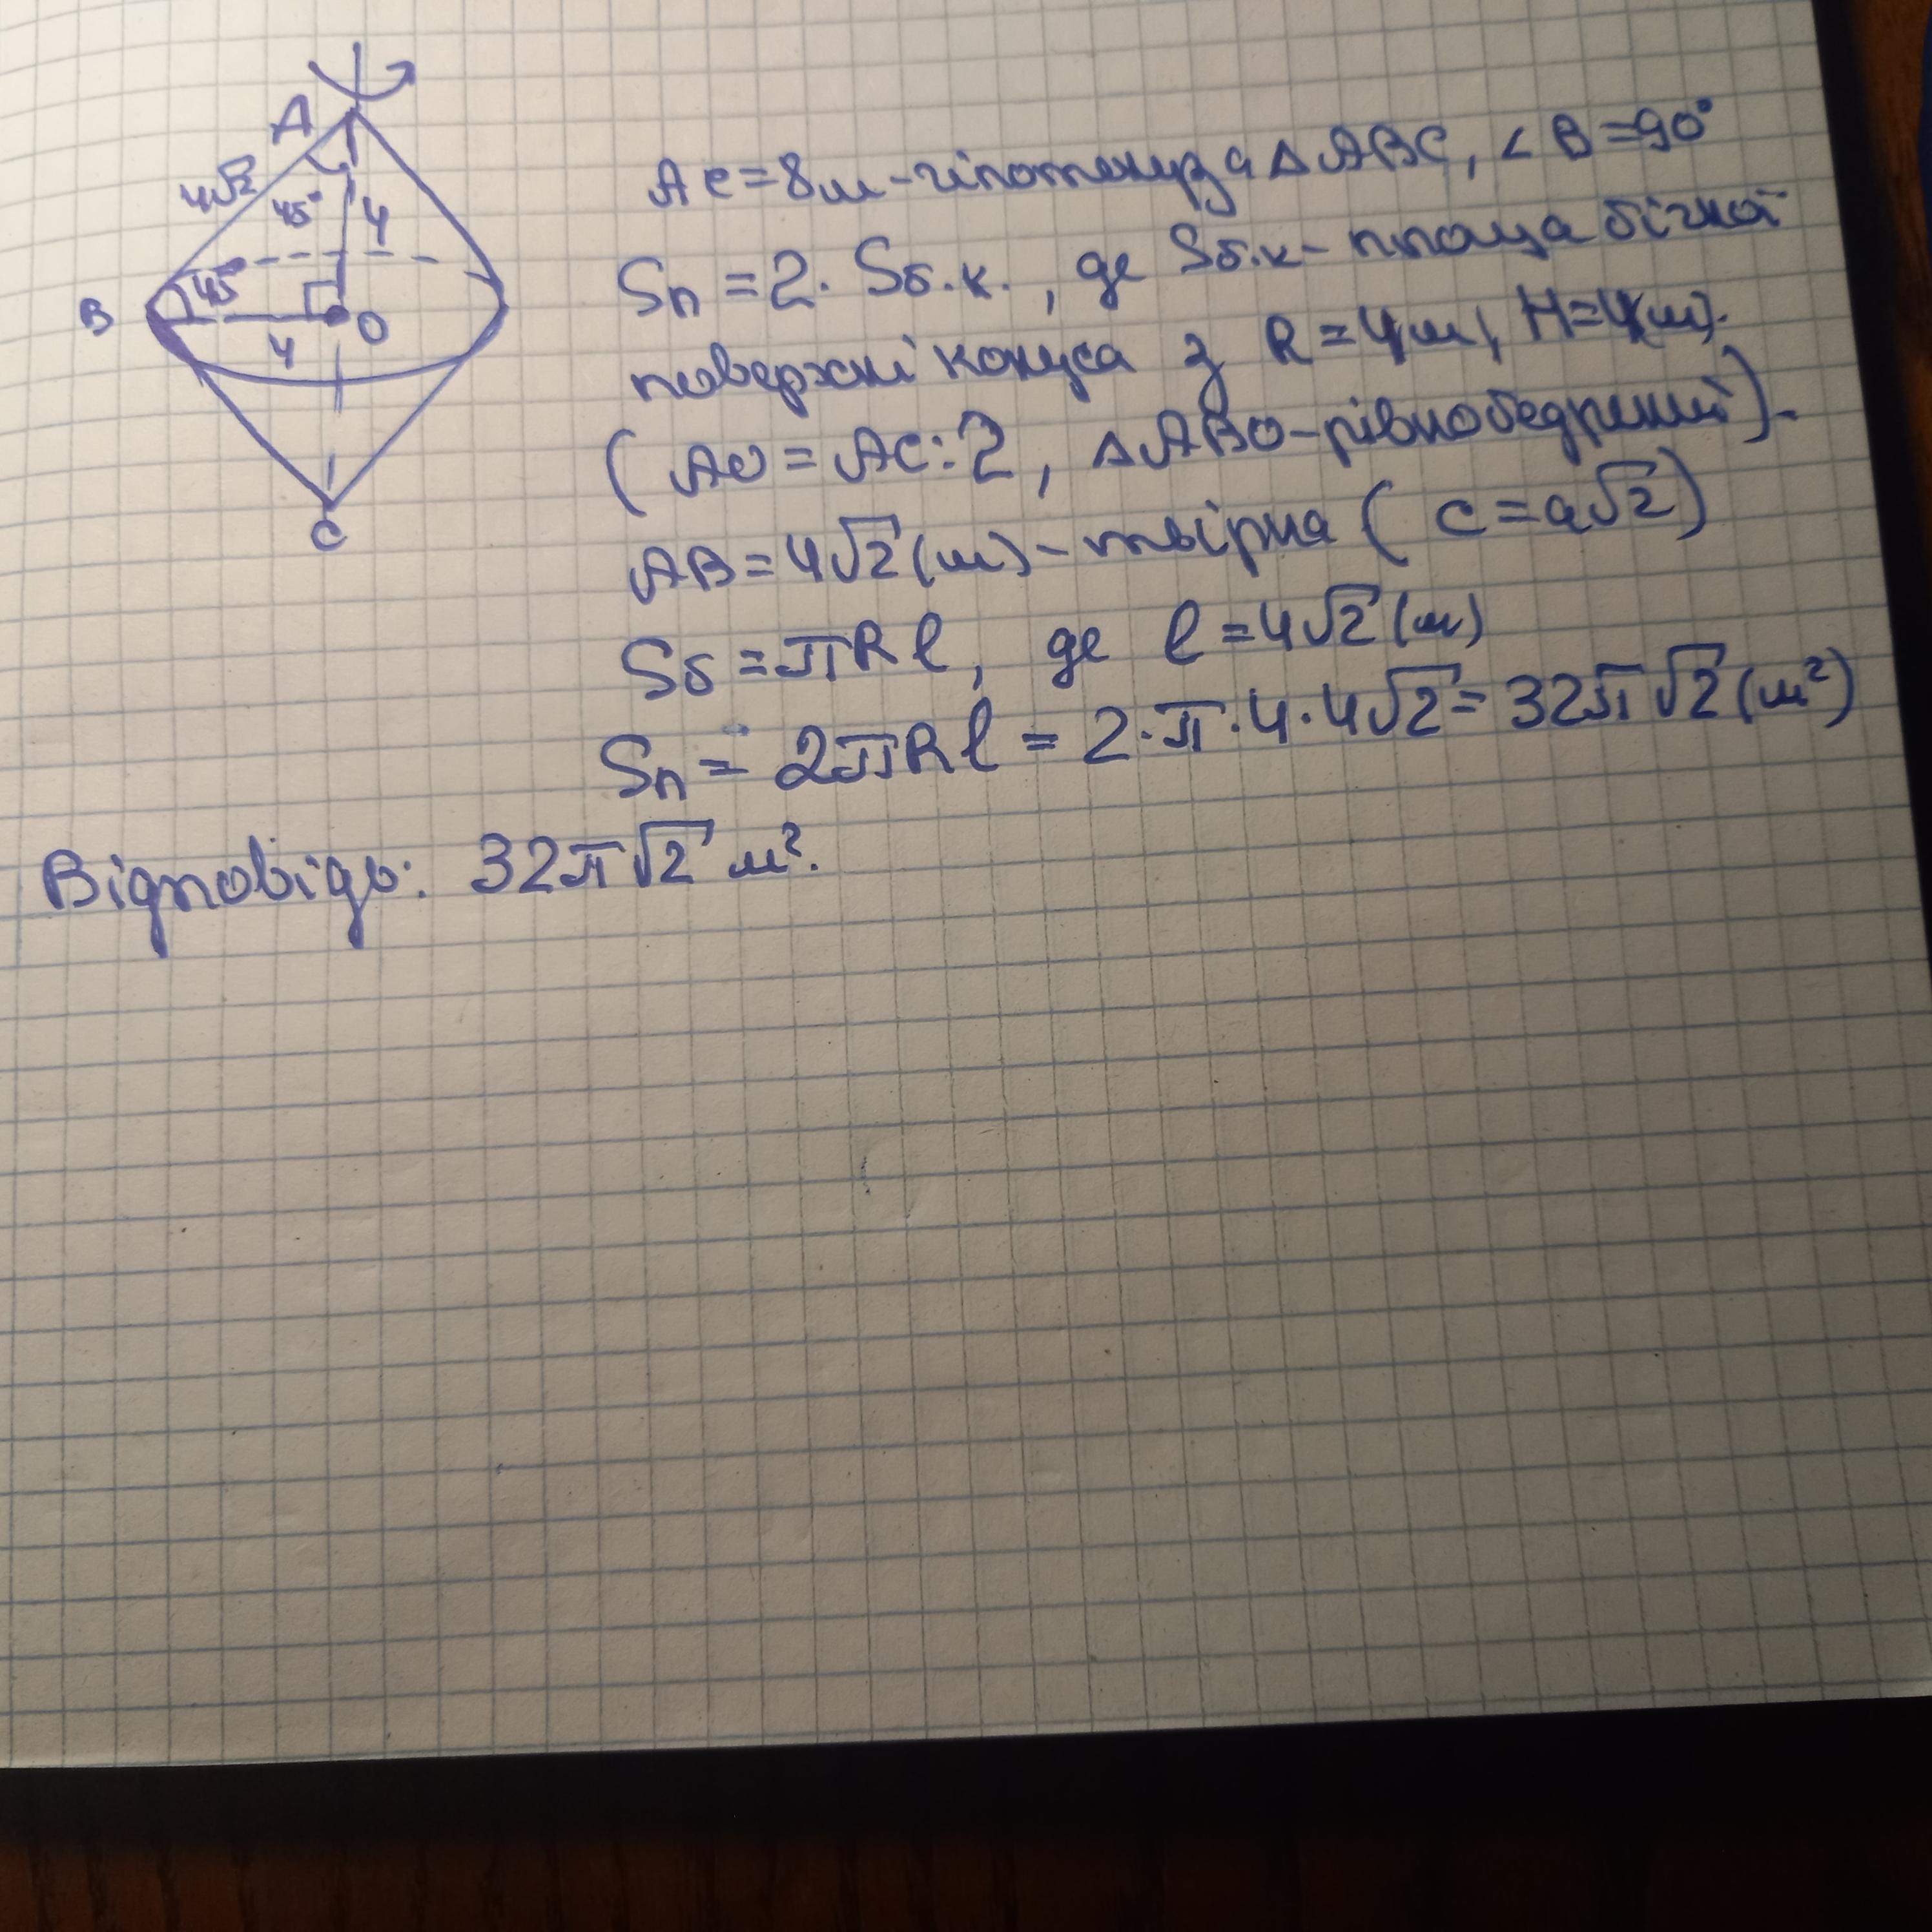 A
4√2
45°
4
B
45°
O
4
C
AC=8м-гіпотенуза ΔABC, ∠B=90°
Sп =2· Sб.к. , де Sб.к- площа бічної
поверхні конуса з R=4м, H=4(м).
( AO = AC:2, ΔABO-рівнобедрений).
AB=4√2(м)-твірна ( c=a√2)
Sб =πRl, де l=4√2(м)
Sп = 2πRl = 2·π·4·4√2= 32π√2(м²)
Відповідь: 32π√2 м².